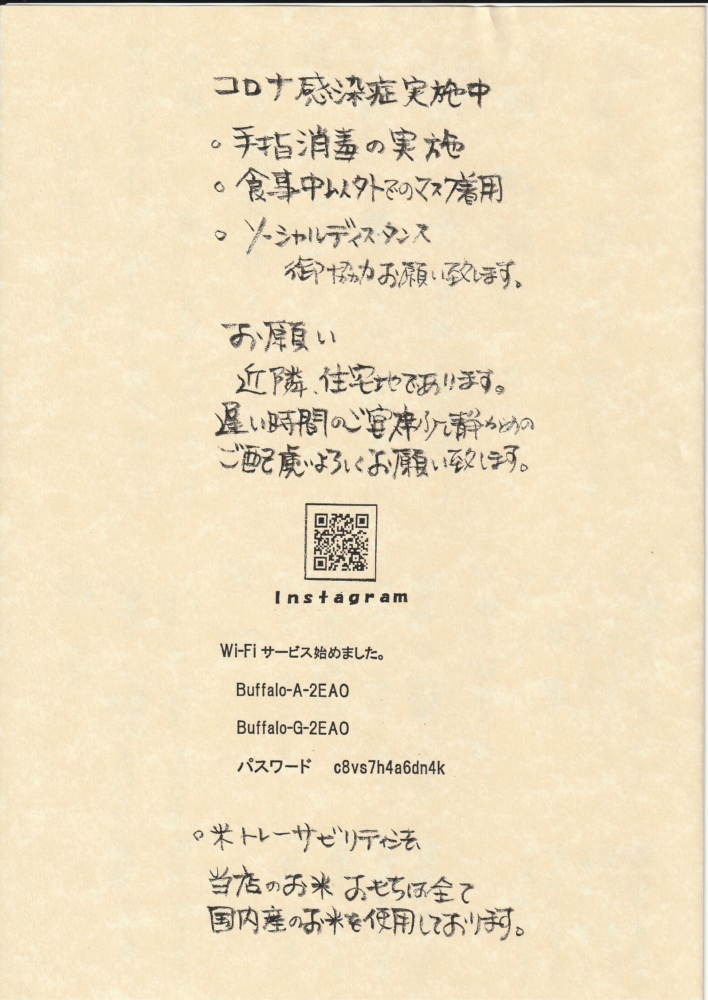 コロナ感染症実施中
○ 手指消毒の実施
○ 食事中以外でのマスク着用
○ ソーシャルディスタンス
御協力お願い致します。
お願い
近隣、住宅地であります。
遅い時間のご宴席少し静かめの
ご配慮よろしくお願い致します。
Instagram
Wi-Fi サービス始めました。
Buffalo-A-2EA0
Buffalo-G-2EA0
パスワード c8vs7h4a6dn4k
○米トレーサビリティ法
当店のお米 おもちは全て
国内産のお米を使用しております。